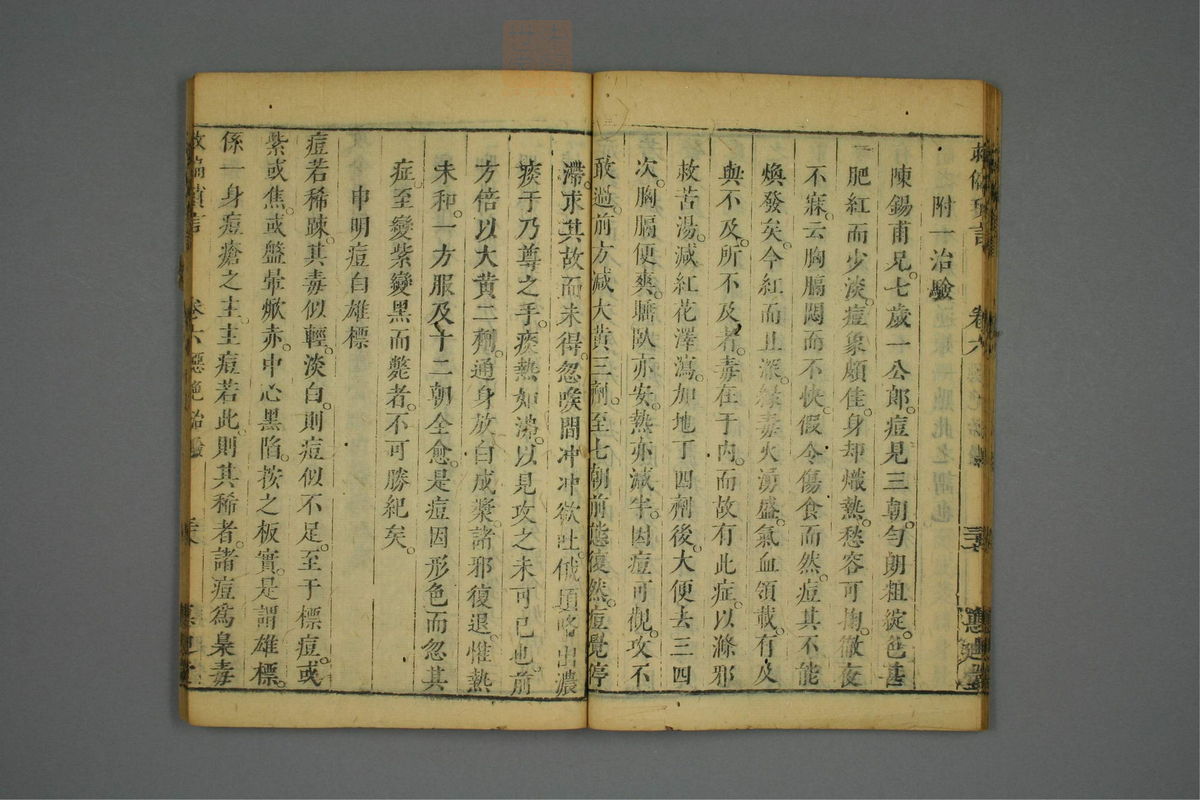 救偏瑣言 卷六
附一治驗
陳錫甫兄七歲一公郎。痘見三朝。勻朗粗綻。色甚
肥紅而少淡。痘象頗佳。身却熾熱。愁容可掬。徹夜
不寐。云胸膈悶而不快。假令傷食而然。痘其不能
煥發矣。今紅而且深。緣毒火湧盛。氣血領載。有及
與不及。所不及者。毒在于內。而故有此症。以滌邪
救苦湯。減紅花澤瀉。加地丁四劑後。大便去三四
次。胸膈便爽。臥亦安。熱亦減半。因痘可觀。攻不
敢過。前方減大黃三劑。至七朝前態復然。痘覺停
滯。求其故而未得。忽喉間冲冲欲吐。俄頃略出濃
痰于乃尊之手。痰熱如沸。以見攻之未可已也。前
方倍以大黃二劑。通身放白成漿。諸邪復退。惟熱
未和。一方服及十二朝全愈。是痘因形色而忽其
症。至變紫變黑而斃者。不可勝紀矣。
申明痘白雄標
痘若稀踈。其毒似輕。淡白。則痘似不足。至于標痘。或
紫或焦。或盤暈焮赤。中心黑陷。按之板實。是謂雄標。
係一身痘瘡之主。主痘若此。則其稀者。諸痘爲梟毒
救偏瑣言 卷六